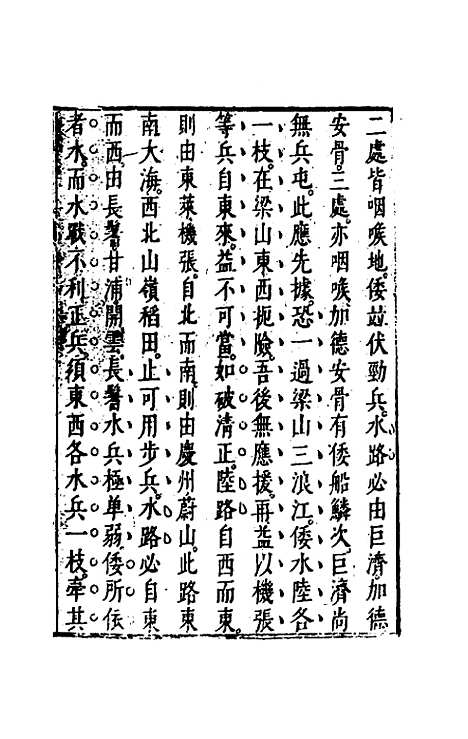 二處皆咽喉地。倭竝伏勁兵。水路必由巨濟加德
安骨。三處。亦咽喉。加德安骨有倭船鱗次。巨濟尚
無兵屯。此應先據。恐一過梁山三浪江。倭水陸各
一枝。在梁山東西扼險。吾後無應援。再益以機張
等兵自東來。益不可當。如破清正。陸路自西而東。
則由東萊機張。自北而南。則由慶州蔚山。此路東
南大海。西北山嶺稻田。止可用步兵。水路必自東
而西。由長鬐甘浦開雲。長鬐水兵極單弱。倭所依
者水。而水戰不利正兵。須東西各水兵一枝。牽其